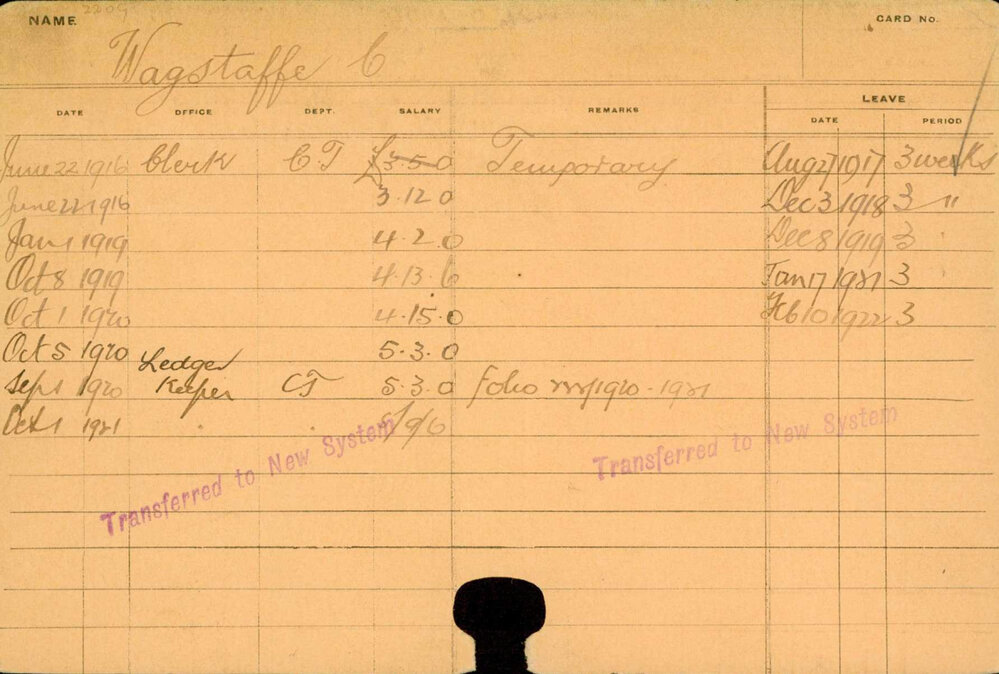 NAME CARD No.
Wagstaffe C
LEAVE
DATE OFFICE DEPT. SALARY REMARKS DATE PERIOD
June 22 1916 Clerk CT £3-5-0 Temporary Aug 27 1917 3 weeks
June 22 1916 3.12 0 Dec 3 1918 3 "
Jan 1 1919 4.2.0 Dec 8 1919 3
Oct 8 1919 4.13.6 Jan 17 1921 3
Oct 1 1920 4.15.0 Feb 10 1922 3
Oct 5 1920 5.3.0
Sept 1 1920 Ledger Keeper CT 5.3.0 folio 1920-1921
Oct 1 1921
Transferred to New System Transferred to New System